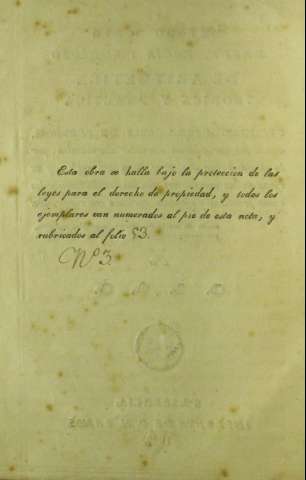 Esta obra se halla bajo la proteccion de las
leyes para el derecho de propiedad, y todos los
ejemplares van numerados al pie de esta nota, y
rubricados al folio 53.
Nº 3.